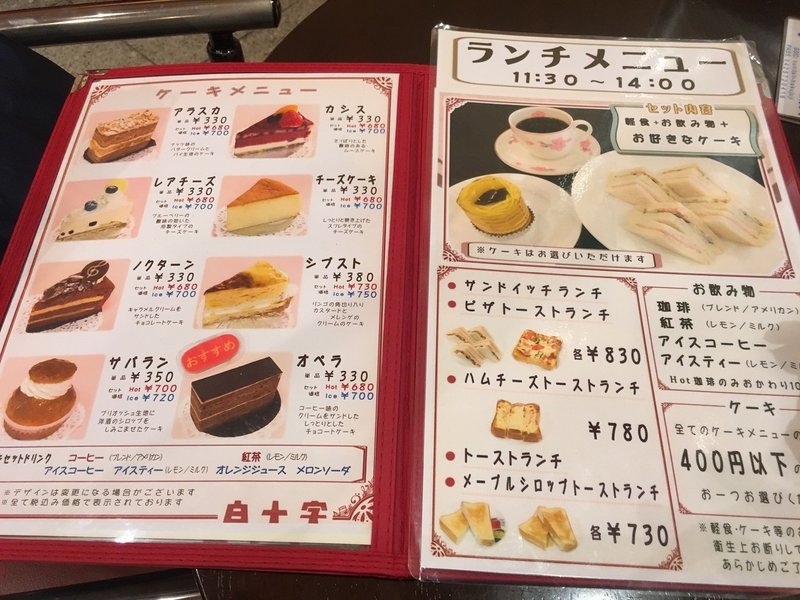 ケーキメニュー
アラスカ
単品 ¥330
セット価格 Hot ¥680
Ice ¥700
ナッツ味の
バタークリームと
パイ生地のケーキ
カシス
単品 ¥330
セット価格 Hot ¥680
Ice ¥700
さっぱりとした
酸味のある
ムースケーキ
レアチーズ
単品 ¥330
セット価格 Hot ¥680
Ice ¥700
ブルーベリーの
酸味の効いた
特製タイプの
チーズケーキ
チーズケーキ
単品 ¥330
セット価格 Hot ¥680
Ice ¥700
しっとりと焼き上げた
スフレタイプの
チーズケーキ
ノクターン
単品 ¥330
セット価格 Hot ¥680
Ice ¥700
キャラメルクリームを
サンドした
チョコレートケーキ
シブスト
単品 ¥380
セット価格 Hot ¥730
Ice ¥750
リンゴの角切り入り
カスタードと
メレンゲの
クリームのケーキ
サバラン
単品 ¥350
セット価格 Hot ¥700
Ice ¥720
ブリオッシュ生地に
洋酒のシロップを
しみこませたケーキ
おすすめ
オペラ
単品 ¥330
セット価格 Hot ¥680
Ice ¥700
コーヒー味の
クリームをサンドした
しっとりとした
チョコレートケーキ
セットドリンク コーヒー(ブレンド/アメリカン) 紅茶(レモン/ミルク)
アイスコーヒー アイスティー(レモン/ミルク) オレンジジュース メロンソーダ
※デザインは変更になる場合がございます
※全て税込み価格で表示されております
白十字
ランチメニュー
11:30～14:00
セット内容
軽食+お飲み物+
お好きなケーキ
※ケーキはお選びいただけます
●サンドイッチランチ
●ピザトーストランチ
各¥830
●ハムチーズトーストランチ
¥780
●トーストランチ
●メープルシロップトーストランチ
各¥730
お飲み物
珈琲(ブレンド/アメリカン)
紅茶(レモン/ミルク)
アイスコーヒー
アイスティー(レモン/ミ
Hot珈琲のみおかわり10
ケーキ
全てのケーキメニューの
400円以下の
お一つお選びく
※軽食・ケーキ等のお
衛生上お断りして
あらかじめご了